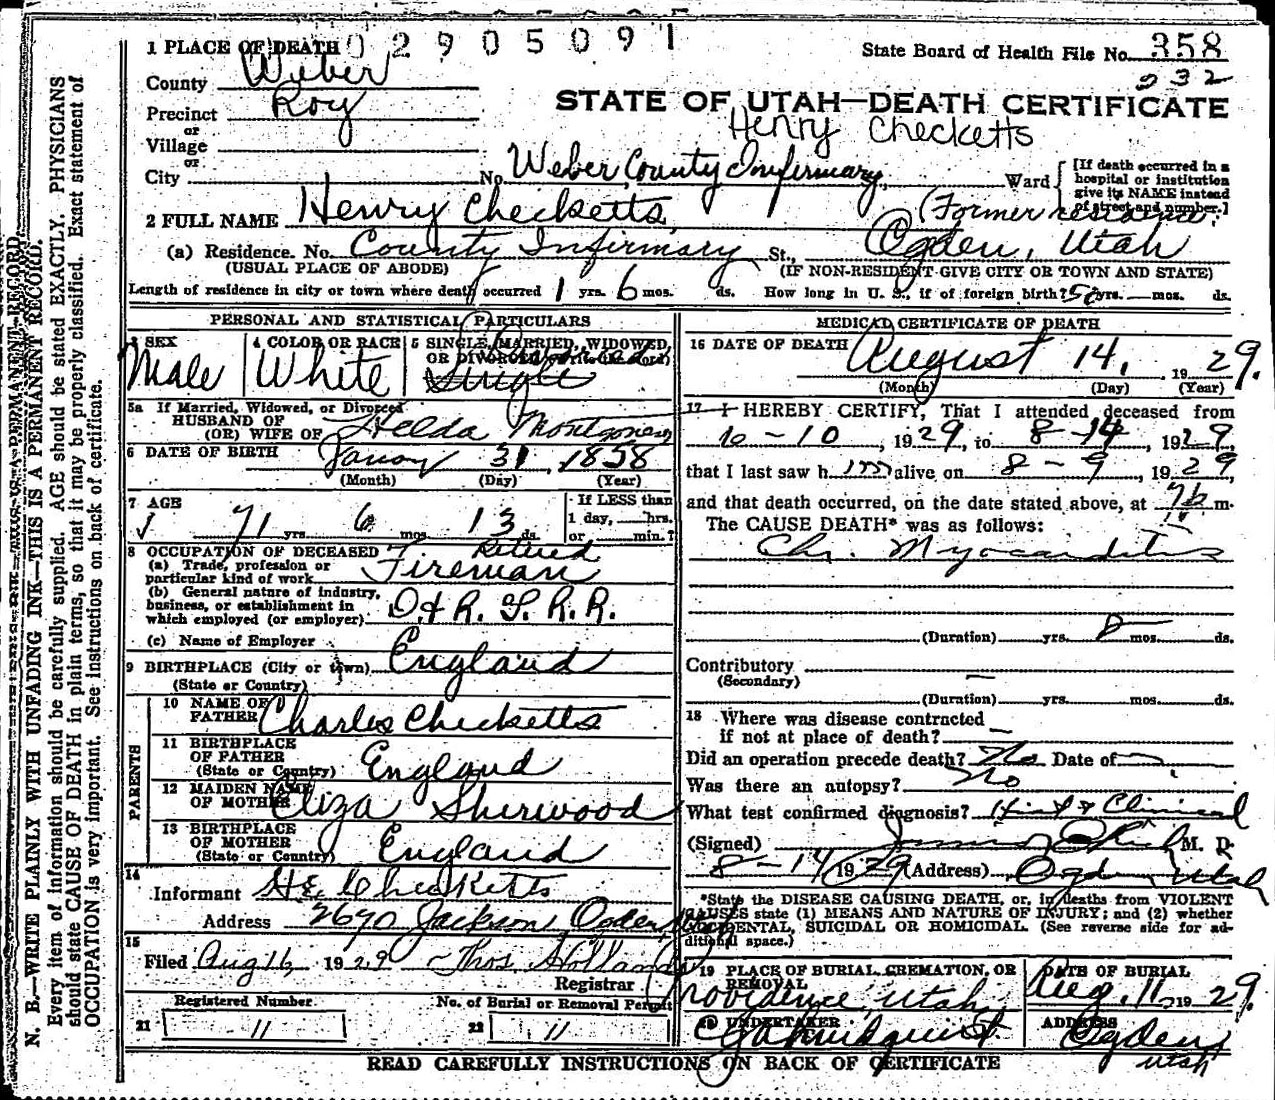 N. B.—WRITE PLAINLY WITH UNFADING INK—THIS IS A PERMANENT RECORD.
Every item of information should be carefully supplied. AGE should be stated EXACTLY. PHYSICIANS
should state CAUSE OF DEATH in plain terms, so that it may be properly classified. Exact statement of
OCCUPATION is very important. See instructions on back of certificate.
02905091
1 PLACE OF DEATH
State Board of Health File No. 358
232
County Weber
Precinct Roy
or
Village
or
City
STATE OF UTAH—DEATH CERTIFICATE
Henry Checketts
No. Weber County Infirmary, Ward
[If death occurred in a
hospital or institution
give its NAME instead
of street and number.]
2 FULL NAME Henry Checketts
(Former
(a) Residence. No. County Infirmary St., Ogden, Utah
(USUAL PLACE OF ABODE) (IF NON-RESIDENT GIVE CITY OR TOWN AND STATE)
Length of residence in city or town where death occurred 1 yrs. 6 mos. ds. How long in U. S., if of foreign birth? yrs. mos. ds.
PERSONAL AND STATISTICAL PARTICULARS
3 SEX Male
4 COLOR OR RACE White
5 SINGLE, MARRIED, WIDOWED,
OR DIVORCED
Single
5a If Married, Widowed, or Divorced
HUSBAND OF
(OR) WIFE OF Helda Montgomery
6 DATE OF BIRTH 31, 1858
(Month) (Day) (Year)
7 AGE 71 yrs. 6 mos. 13 ds.
If LESS than
1 day, hrs.
or min.?
8 OCCUPATION OF DECEASED
(a) Trade, profession or
particular kind of work Retired Fireman
(b) General nature of industry,
business, or establishment in
which employed (or employer) D. & R. G. R. R.
(c) Name of Employer
9 BIRTHPLACE (City or town) England
(State or Country)
PARENTS
10 NAME OF
FATHER Charles Checketts
11 BIRTHPLACE
OF FATHER
(State or Country) England
12 MAIDEN NAME
OF MOTHER Eliza Sherwood
13 BIRTHPLACE
OF MOTHER
(State or Country) England
14
Informant H E Checketts
Address 2690 Jackson Ogden
15
Filed Aug 16 1929 Thos Holland
Registrar
Registered Number
21 11
No. of Burial or Removal Permit
22 11
MEDICAL CERTIFICATE OF DEATH
16 DATE OF DEATH August 14, 1929.
(Month) (Day) (Year)
17 I HEREBY CERTIFY, That I attended deceased from
6-10, 1929, to 8-14, 1929,
that I last saw him alive on 8-9, 1929
and that death occurred, on the date stated above, at m.
The CAUSE DEATH* was as follows:
Chr. Myocarditis
(Duration) yrs. 8 mos. ds.
Contributory
(Secondary)
(Duration) yrs. mos. ds.
18 Where was disease contracted
if not at place of death? —
Did an operation precede death? No Date of
Was there an autopsy? No
What test confirmed diagnosis? Hist & Clinical
(Signed) M. D.
8-14 1929 (Address) Ogden, Utah
*State the DISEASE CAUSING DEATH, or, in deaths from VIOLENT
CAUSES state (1) MEANS AND NATURE OF INJURY; and (2) whether
ACCIDENTAL, SUICIDAL OR HOMICIDAL. (See reverse side for ad-
ditional space.)
19 PLACE OF BURIAL, CREMATION, OR
REMOVAL
Providence, Utah
DATE OF BURIAL
Aug. 11, 1929.
20 UNDERTAKER
ADDRESS
Ogden
Utah
READ CAREFULLY INSTRUCTIONS ON BACK OF CERTIFICATE